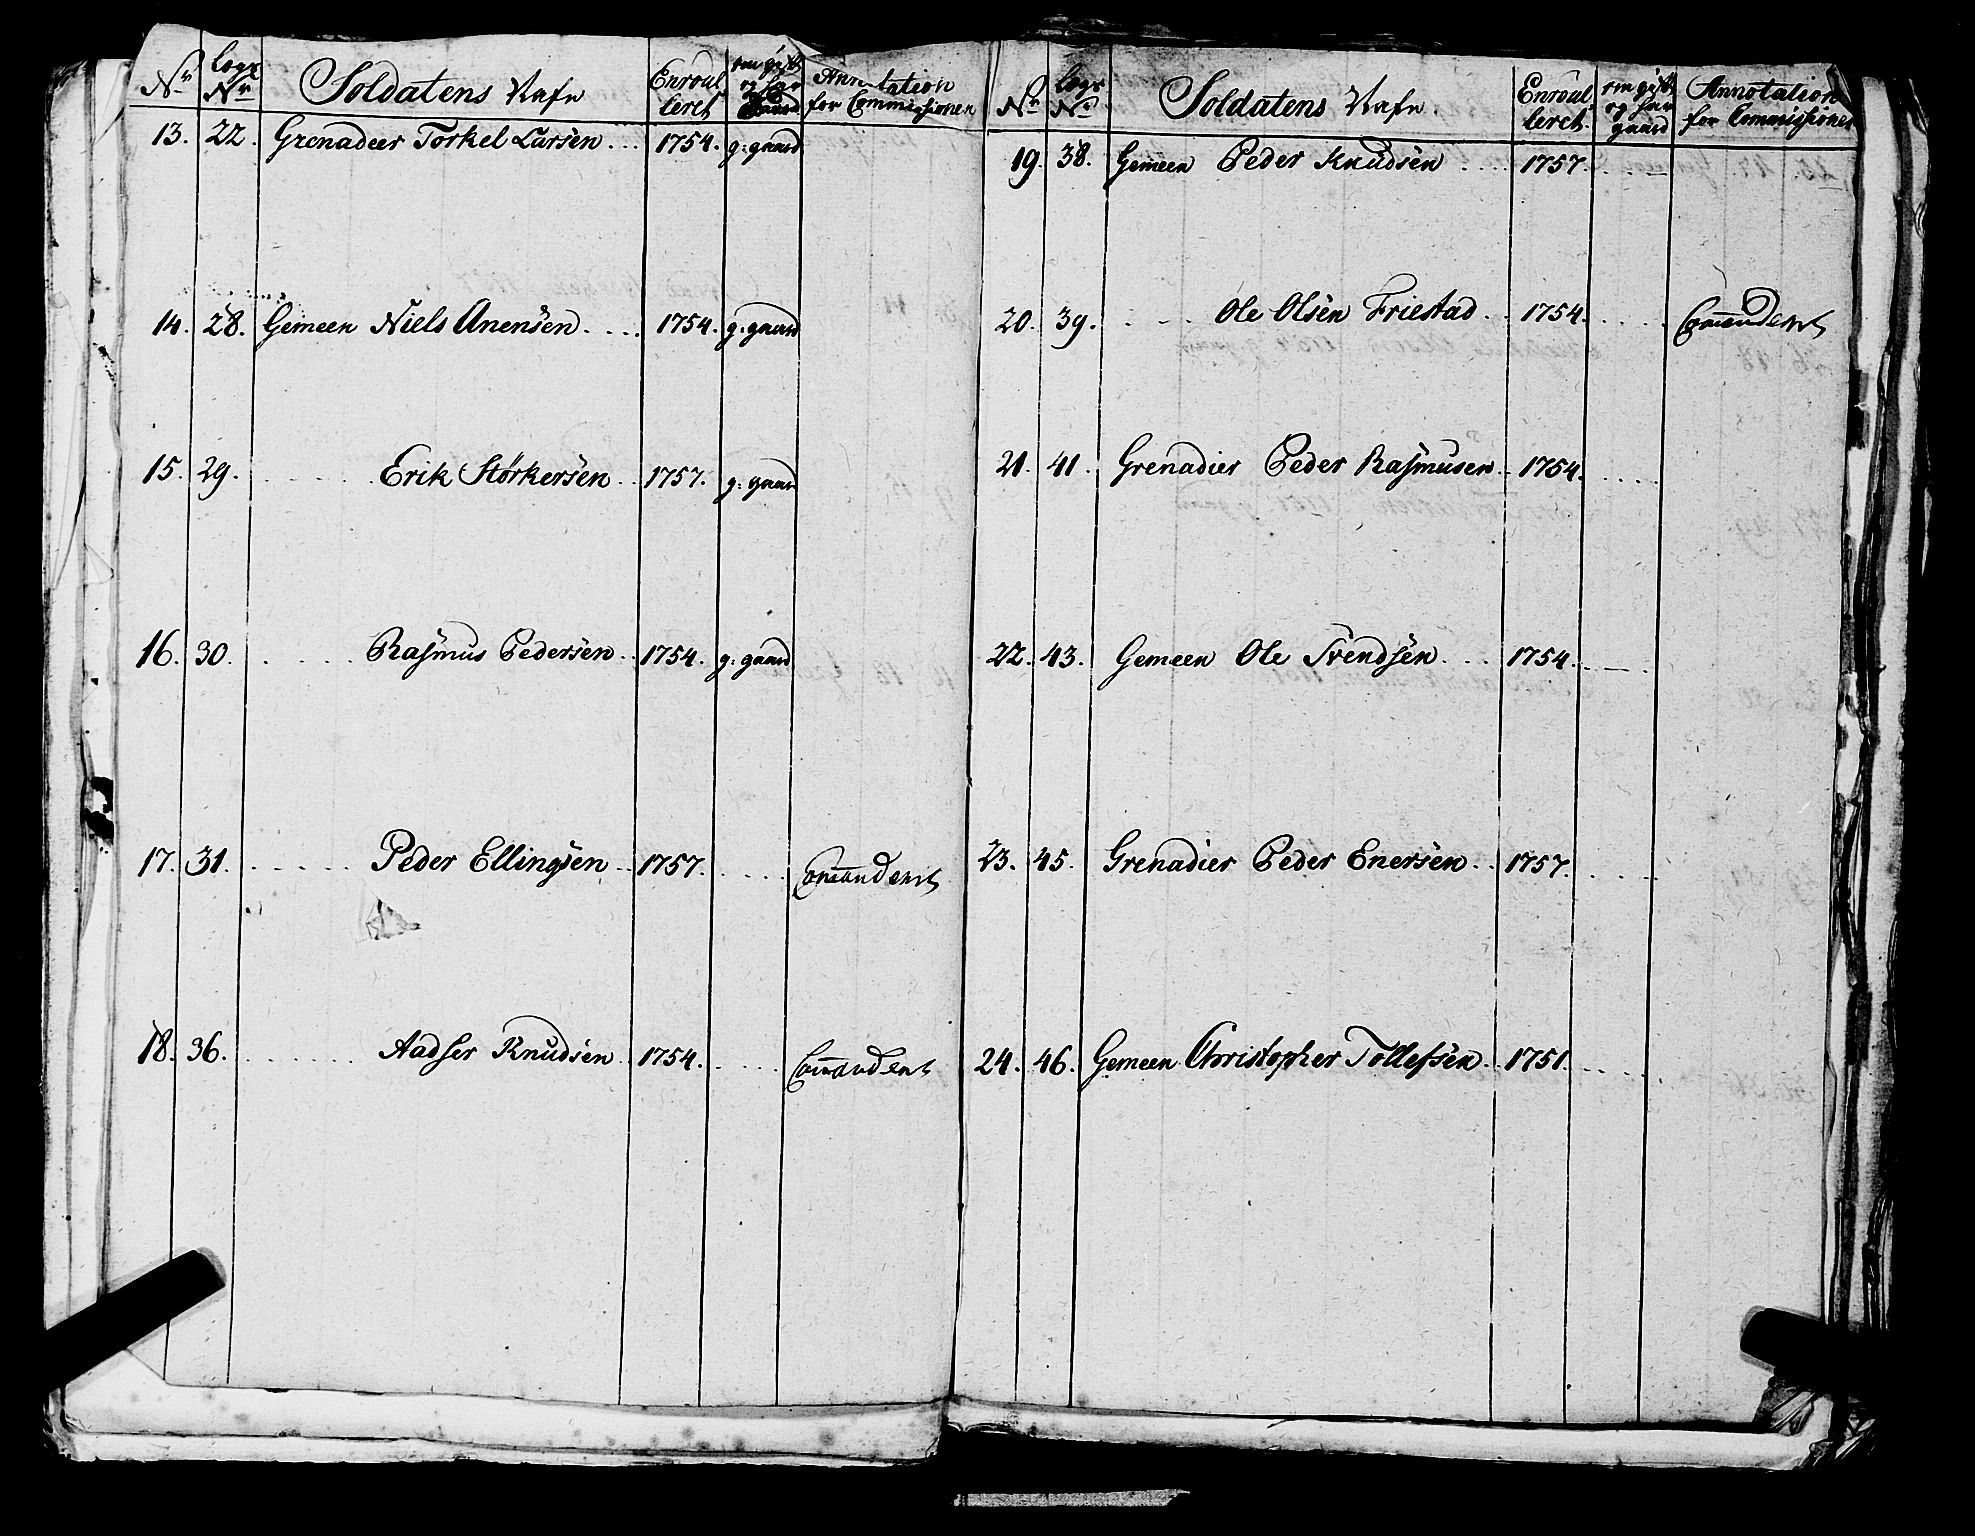 Nr Legs Nr Soldatens Nafn Enroulleret om gift og har gaard Annotation for Commissionen
13. 22. Grenadeer Torkel Larsen ... 1754. g: gaard
14. 28. Gemeen Niels Anensen .... 1754. g: gaard
15. 29. ...... Erik Størkersen .. 1757. g: gaard
16. 30. ..... Rasmus Pedersen .. 1754. g: gaard
17. 31. ...... Peder Ellingsen .. 1757. .... Com̄anderet
18. 36. ...... Aadser Knudsen .. 1754. .... Com̄anderet
Nr Legs No Soldatens Nafn. Enroulleret om gift og har gaard Annotation for Commissionen
19. 38. Gem̄een Peder Knudsen .... 1757. ....
20. 39. .... Ole Olsen Friestad .. 1754. .... Com̄anderet
21. 41. Grenadier Peder Rasmusen .. 1754. ....
22. 43. Gemeen Ole Svendsen .... 1754. ....
23. 45. Grenadier Peder Enersen .. 1757. ....
24. 46. Gemeen Christopher Tollefsen .. 1751. ....